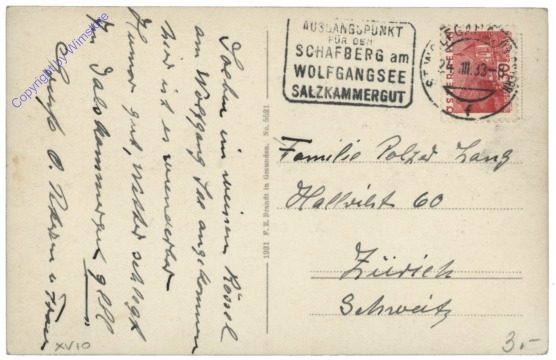 Soeben im weissen Rössel
am Wolfgang See angekommen
hier ist es wunderbar
Humor gut, Wetter schlecht
Im Salzkammergut
Grüsse
AUSGANGSPUNKT
FÜR DEN
SCHAFBERG am
WOLFGANGSEE
SALZKAMMERGUT
ST. WOLFGANG
24.III.33
ÖSTERREICH
Familie Polzer Lang
Hallwilst 60
Zürich
Schweiz
1931 F. E. Brandt in Gmunden. No. 5521
XV10
3.-
Copyright by Wimstec